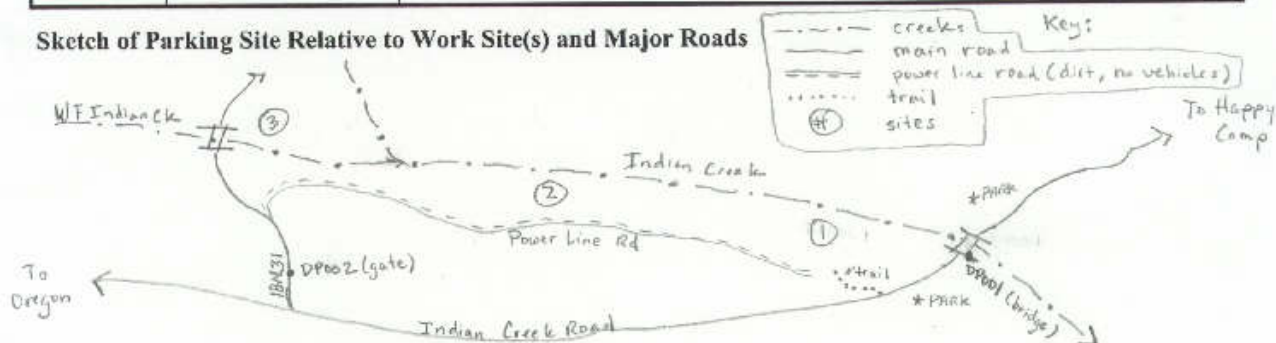 Sketch of Parking Site Relative to Work Site(s) and Major Roads
Key:
creeks
main road
power line road (dirt, no vehicles)
trail
# sites
To Happy
Camp
WF Indian Ck
3
Indian Creek
2
1
*PARK
Power Line Rd
trail
DP001 (bridge)
*PARK
DP002 (gate)
18N31
To
Oregon
Indian Creek Road